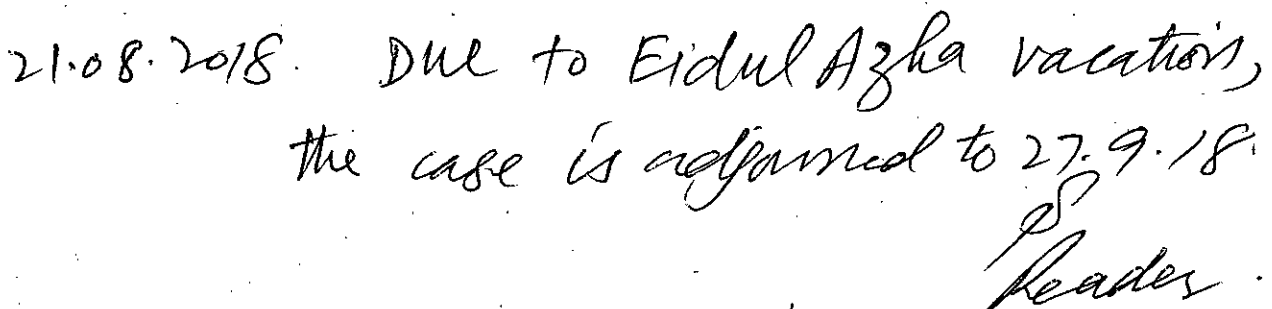 21.08.2018. Due to Eidul Azha vacation,
the case is adjourned to 27.9.18.
Reader.